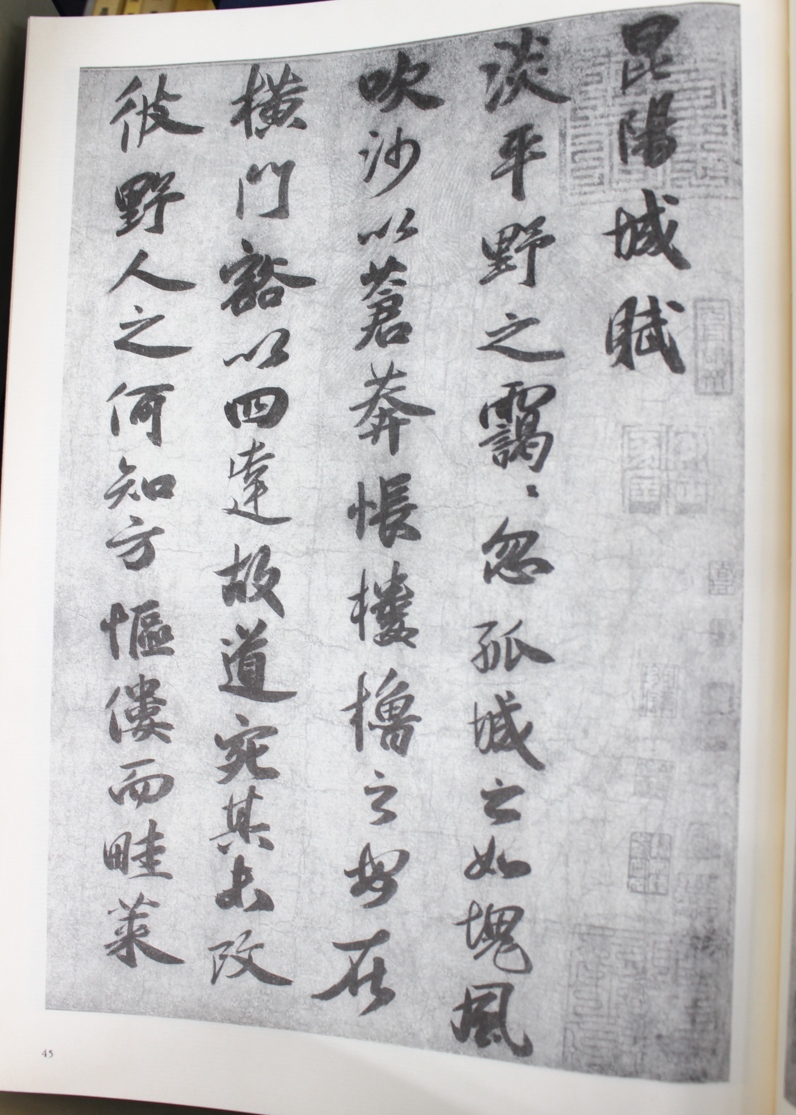 昆陽城賦
淡平野之靄〻忽孤城之如塊風
吹沙以蒼莽悵樓櫓之安在
橫門豁以四達故道宛其未改
彼野人之何知方傴僂而畦菜
45